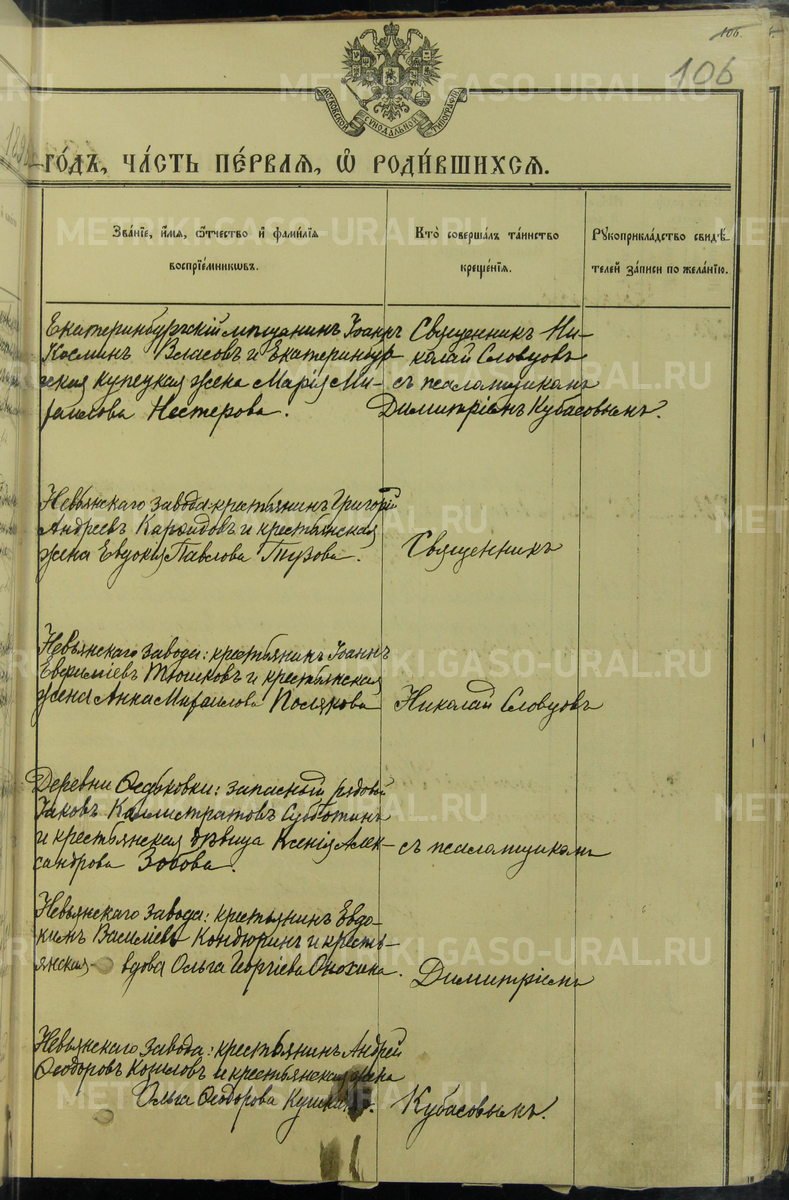 106.
106
МОСКОВСКОЙ СѴНОДАЛЬНОЙ ТИПОГРАФІИ
189
ГО́ДЪ, ЧА́СТЬ ПЕ́РВАѦ, Ѡ҆ РОДИ́ВШИХСѦ.
Зва́нїе, и҆́мѧ, ѻ҆́тчество и҆ фами́лїѧ
воспрїе́мникѡвъ.
Кто̀ соверша́лъ та́инство
креще́нїѧ.
Рꙋкоприкла́дство свидѣ́-
телей за́писи по жела́нїю.
Екатеринбургскій мѣщанинъ Іоаннъ
Космин Власовъ и Екатеринбур-
гская купецкая жена Марія Ми-
хаилова Нестерова.
Священникъ Ни-
колай Словцовъ
съ псаломщикомъ
Димитріемъ Кубасовымъ.
Невьянскаго завода: крестьянинъ Григорій
Андреевъ и крестьянская
жена Евдокія Павлова Тузова.
Священникъ
Невьянскаго завода: крестьянинъ Іоаннъ
Евфиміевъ Тюшковъ и крестьянская
жена Анна Михаилова Полякова
Николай Словцовъ
Деревни Ѳедьковки: запасный рядовой
Іаковъ Каллистратовъ Субботинъ
и крестьянская дѣвица Ксенія Алек-
сандрова Зобова.
съ псаломщикомъ
Невьянскаго завода: крестьянинъ Евдо-
кимъ Василіевъ Кондюринъ и кресть-
янская вдова Ольга Георгіева Онохина.
Димитріемъ
Невьянскаго завода: крестьянинъ Андрей
Ѳеодоровъ Козиловъ и крестьянская жена
Ольга Ѳеодорова
Кубасовымъ.
METRIKI.GASO-URAL.RU